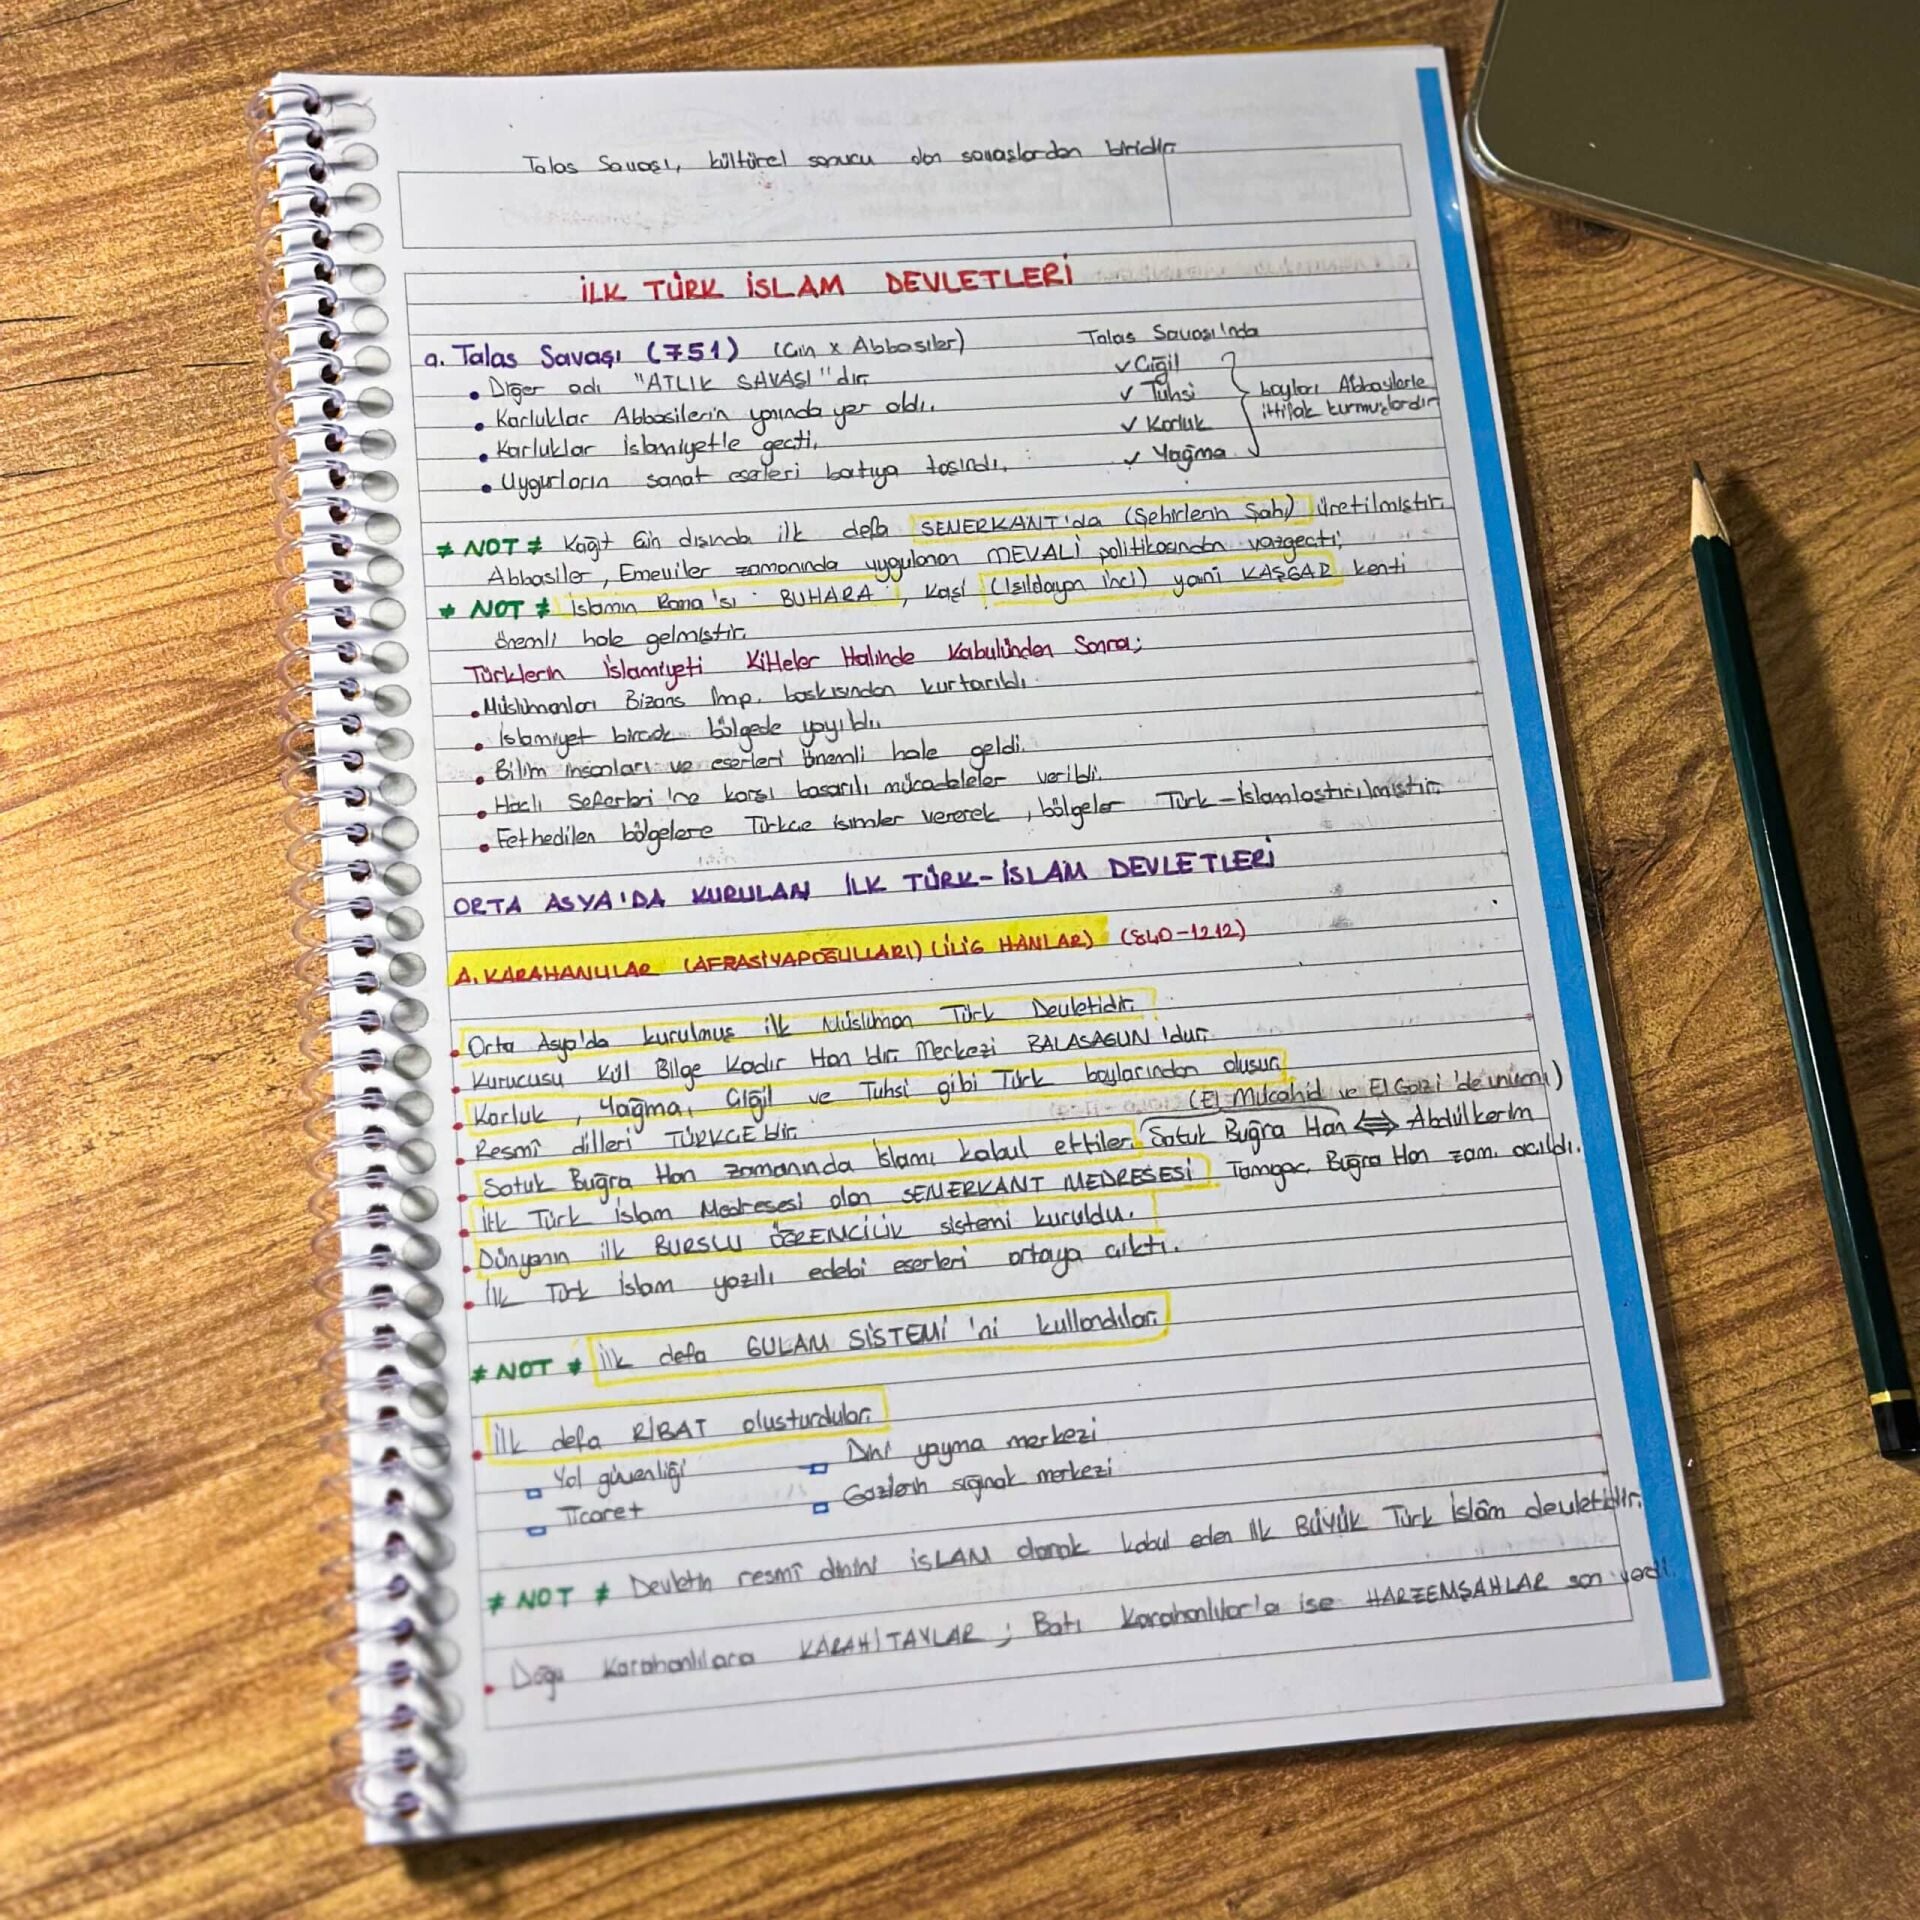 Talas Savaşı, kültürel sonucu olan savaşlardan biridir.
İLK TÜRK İSLAM DEVLETLERİ
a. Talas Savaşı (751) (Çin x Abbasiler)
• Diğer adı "ATLIK SAVAŞI"dır.
• Karluklar Abbasilerin yanında yer aldı.
• Karluklar İslamiyet'e geçti.
• Uygurların sanat eserleri batıya taşındı.
Talas Savaşı'nda
✓ Çiğil
✓ Tuhsi
✓ Karluk
✓ Yağma
boyları Abbasilerle
ittifak kurmuşlardır
* NOT * Kağıt Çin dışında ilk defa SEMERKANT'da (Şehirlerin Şahı) üretilmiştir.
Abbasiler, Emeviler zamanında uygulanan MEVALİ politikasından vazgeçti;
* NOT * İslamın Roma'sı BUHARA, Kaşi (Işıldayan inci) yani KAŞGAR kenti
önemli hale gelmiştir.
Türklerin İslamiyeti Kitleler Halinde Kabulünden Sonra;
• Müslümanları Bizans İmp. baskısından kurtarıldı.
• İslamiyet birçok bölgede yayıldı.
• Bilim insanları ve eserleri önemli hale geldi.
• Haçlı Seferleri'ne karşı başarılı mücadeleler verildi.
• Fethedilen bölgelere Türkçe isimler vererek, bölgeler Türk-İslamlaştırılmıştır.
ORTA ASYA'DA KURULAN İLK TÜRK-İSLAM DEVLETLERİ
A. KARAHANLILAR (AFRASİYAPOĞULLARI) (İLİG HANLAR) (840-1212)
• Orta Asya'da kurulmuş ilk Müslüman Türk Devletidir.
• Kurucusu Kül Bilge Kadir Han'dır. Merkezi BALASAGUN'dur.
• Karluk, Yağma, Çiğil ve Tuhsi gibi Türk boylarından oluşur.
• Resmî dilleri TÜRKÇE'dir.
(El Mücahid ve El Gazi 'de unvanı)
• Satuk Buğra Han zamanında İslamı kabul ettiler. Satuk Buğra Han ⇔ Abdülkerim
• İlk Türk İslam Medresesi olan SEMERKANT MEDRESESİ Tamgaç Buğra Han zam. açıldı.
• Dünyanın ilk BURSLU ÖĞRENCİLİK sistemi kuruldu.
• İlk Türk İslam yazılı edebi eserleri ortaya çıktı.
* NOT * İlk defa GULAM SİSTEMİ 'ni kullandılar.
• İlk defa RİBAT oluşturdular.
Yol güvenliği
Dini yayma merkezi
Ticaret
Gazilerin sığınak merkezi
* NOT * Devletin resmî dinini İSLAM olarak kabul eden ilk BÜYÜK Türk İslâm devletidir.
• Doğu Karahanlılara KARAHİTAYLAR; Batı Karahanlılar'a ise HARZEMŞAHLAR son verdi.